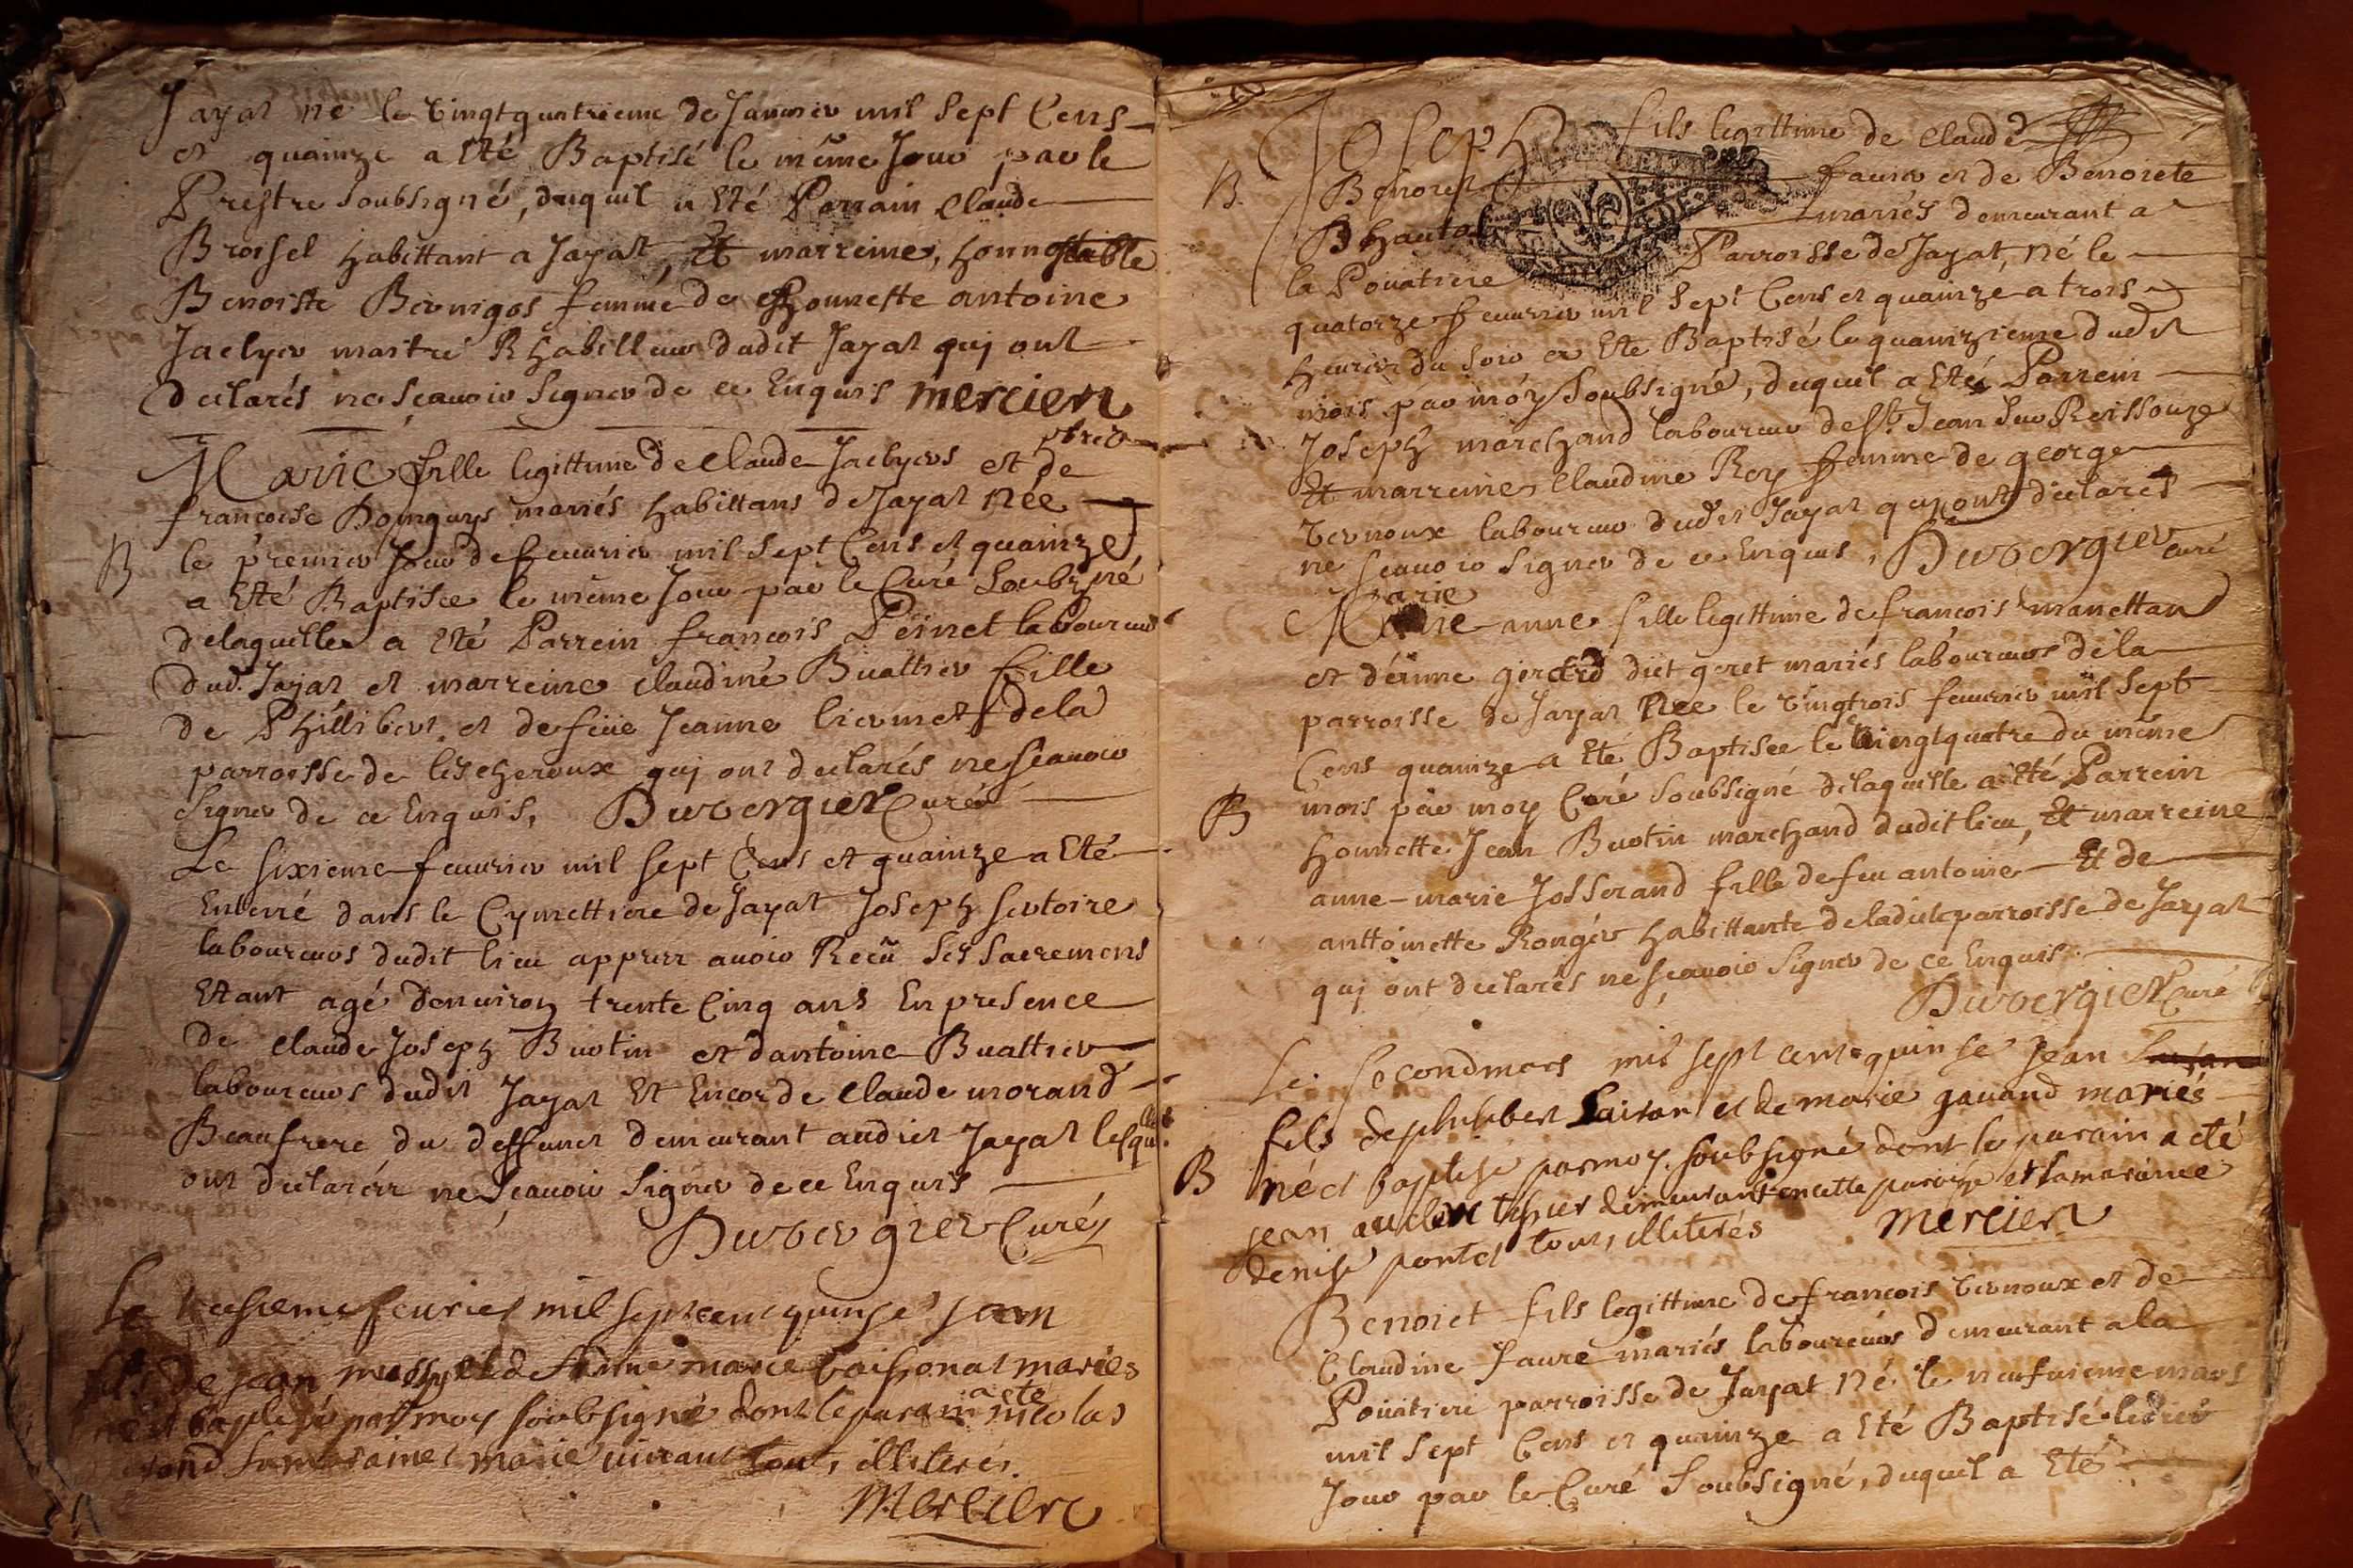 Jayat né le vingtquatrieme de Januier mil sept Cens
et quainze a Eté Baptisé le même Jour par le
Prestre soubsigné, duquil a Eté Parrain Claude
Broissel habittant a Jayat, Et marreine, honnostable
Benoiste femme de honnette antoine
Jaclyer maitre Rhabilleur dudit Jayat quj ont
declarés ne scauoir signer de ce Enquis mercier
ptre
Marie fille legittime de Claude Jaclyers et de
francoise mariés habittans de Jayat Née
B le premier Jour de feurier mil sept Cens et quainze
a Eté Baptisee le même Jour par le Curé Soubzné
delaquille a eté Parrein francois Peinet laboureur
dud. Jayat et marreine claudine Buattier fille
de Phillibert et de feüe Jeanne liermet de la
parroisse de lescheroux quj ont declarés ne scauoir
signer de ce Enquis, Duvergier Curé
Le sixieme feurier mil sept Cens et quainze a Eté
Enterré dans le Cymettiere de Jayat Joseph sertoire
laboureurs dudit lieu appres auoir Reçu Ses Sacremens
Etant agé d'enuiron trente Cinq ans En presence
de claude Joseph Buotin et dantoine Buattier
laboureurs dudit Jayat Et Encor de Claude morand
Beaufrere du deffunct demeurant audict Jayat lesqulls
ont declarés ne scauoir signer de ce Enquis
Duvergier Curé
Le feurier mil sept cent quinse jean
fils de jean et de marie mariés
né et baptisé par moy soubsigné dont le parain a été nicolas
sa maraine marie tous illiterés.
Mercier
Joseph fils legittime de Claude
B. Benoict faurer et de Benoicte
mariés demeurant a
la Pouatiere Parroisse de Jayat, né le
quatorze feurier mil sept Cens et quainze a trois
heures du soir et Eté Baptisé le quainzieme dudit
mois par moy soubsigné, duquil a Eté Parrein
Joseph marchand laboureur de st. Jean sur Reissouze
Et marreine claudine Roy femme de george
vernoux laboureur dudit Jayat quj ont declarés
ne scauoir signer de ce Enquis, Duvergier curé
arie
M anne fille legittime de francois manettan
et girard dict geret mariés laboureurs de la
parroisse de Jayat Née le vingtrois feurier mil sept
Cens quainze a Eté Baptisee le vingtquatre du même
B mois par moy Curé soubsigné delaquille a Eté Parrein
honnette Jean Buotin marchand dudit lieu, Et marreine
anne-marie Josserand fille de feu antoine Et de
anttoinette Rongér habittante de ladicte parroisse de Jayat
quj ont declarés ne scauoir signer de ce Enquis.
Duvergier Curé
Le second mars mil sept cent quinse jean
fils de philibert et de marie gauand mariés
B né et baptisé par moy soubsigné dont le parain a été
jean demeurant en cette paroisse et la maraine
denise pontet tous illiterés Mercier
Benoict fils legittime de francois vernoux et de
Claudine faure mariés laboureurs demeurant a la
Pouatiere parroisse de Jayat Né le neufuieme mars
mil sept Cens et quainze a Eté Baptisé ledict
Jour par le Curé soubsigné, duquil a Eté